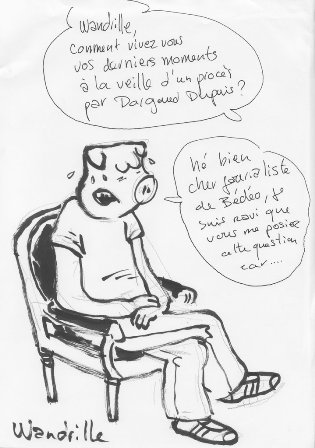 Wandrille,
comment vivez vous
vos derniers moments
à la veille d'un procès
par Dargaud Dupuis ?
hé bien
cher journaliste
de Bédéo, je
suis ravi que
vous me posiez
cette question
car....
Wandrille